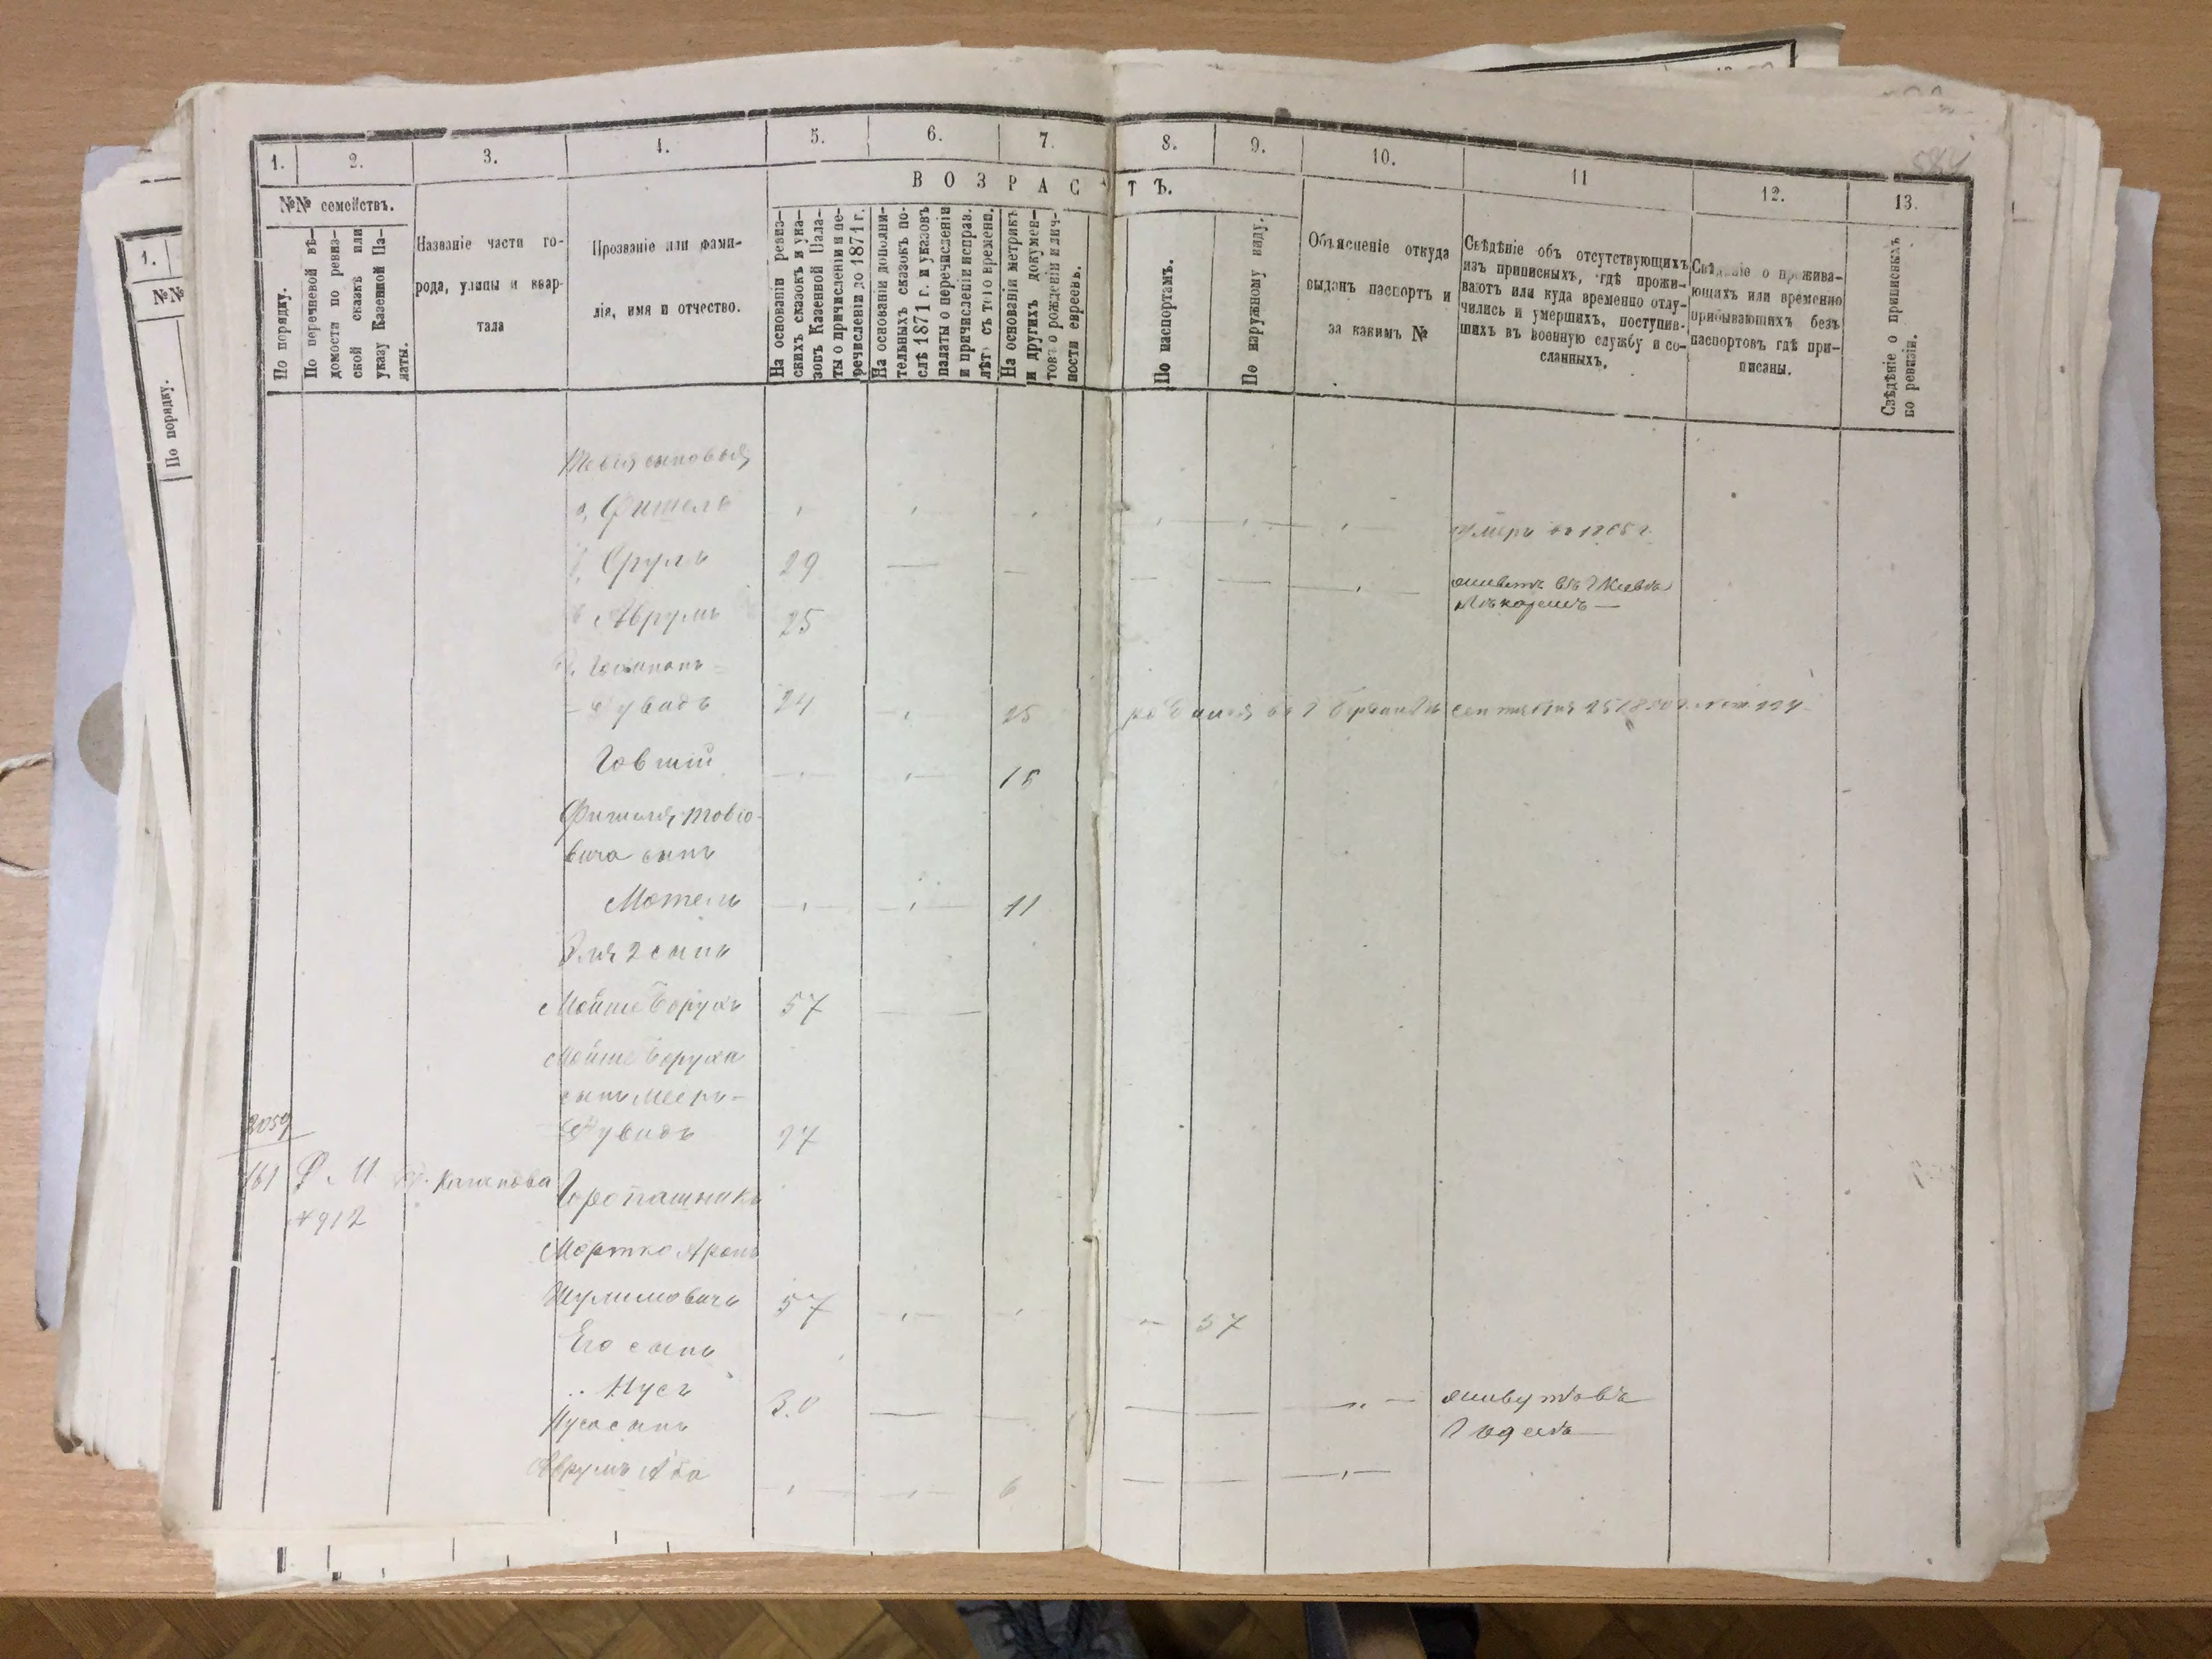 1.
2.
3.
4.
5.
6.
7.
8.
9.
10.
11
12.
13.
ВОЗРАСТЪ.
№№ семействъ.
По порядку.
По перечневой вѣ-
домости по ревиз-
ской сказкѣ или
указу Казенной Па-
латы.
Названіе части го-
рода, улицы и квар-
тала
Прозваніе или фами-
лія, имя и отчество.
На основаніи ревиз-
скихъ сказокъ и ука-
зовъ Казенной Пала-
ты о причисленіи и пе-
речисленіи до 1871 г.
На основаніи дополни-
тельныхъ сказокъ по-
слѣ 1871 г. и указовъ
палаты о перечисленіи
и причисленіи исправ.
лѣтъ съ того времени.
На основаніи метрикъ
и другихъ докумен-
товъ о рожденіи и лич-
ности евреевъ.
По паспортамъ.
По наружному виду.
Объясненіе откуда
выданъ паспортъ и
за какимъ №
Свѣдѣніе объ отсутствующихъ
изъ приписныхъ, гдѣ прожи-
ваютъ или куда временно отлу-
чились и умершихъ, поступив-
шихъ въ военную службу и со-
сланныхъ.
Свѣдѣніе о прожива-
ющихъ или временно
прибывающихъ безъ
паспортовъ гдѣ при-
писаны.
Свѣдѣніе о приписныхъ
по ревизіи.
1.
№№
По порядку.
сыновья
Фишель
умеръ въ 1865 г.
Сруль 29
живетъ въ г Кіевѣ
Аврумъ 25
24 25
сентября 25 1850 г.
Товшій 15
Фишеля Товіо-
вича сынъ
Мотель 11
Эля 2 сынъ
Мойше Борухъ 57
Мойше Боруха
сынъ Мееръ-
2059
161
№ 912
Горопашникъ
Мортко Аронъ
Шулимовичъ 57 57
Его сынъ
Нусъ 30
живутъ въ
Одесѣ
Нуса сынъ
Аврумъ Аба 6